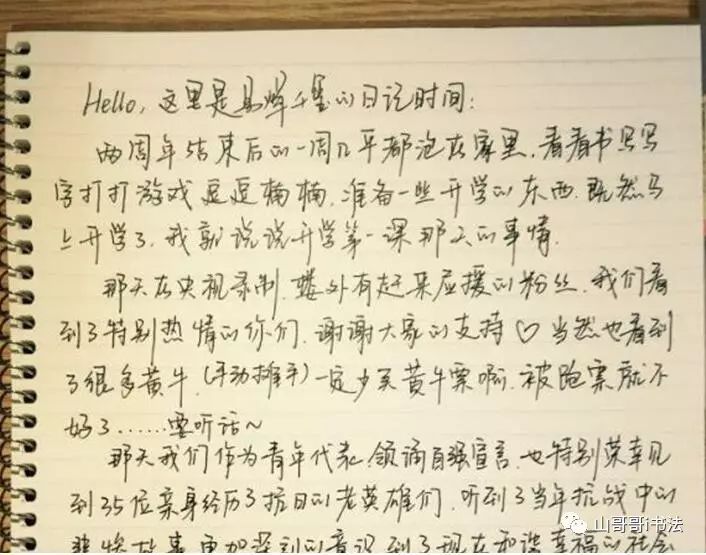 Hello, 这里是易烊千玺的日记时间:
两周年结束后的一周几乎都泡在家里.看看书写写
字打打游戏逗逗楠楠.准备一些开学的东西.既然马
上开学了.我就说说开学第一课那天的事情.
那天在央视录制.楼外有赶来应援的粉丝.我们看
到了特别热情的你们.谢谢大家的支持♡当然也看到
了很多黄牛.(手动摊手)一定少买黄牛票啊.被跑票就不
好了......要听话~
那天我们作为青年代表.领诵自强宣言.也特别荣幸见
到35位亲身经历了抗日的老英雄们.听到了当年抗战中的
悲惨故事.更加深刻的意识到了现在和谐幸福的社会
山哥哥i书法